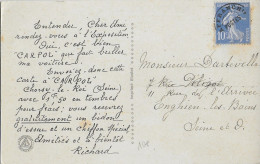 Entendu, Cher Ami
rendez-vous à l'Exposition
Oui, c'est bien
"CARPOL" qui fait briller
ma voiture.
Envoyez donc cette
carte à "CARPOL"
Choisy-le-Roi (Seine)
avec 0f50 en timbres
pour frais; vous recevrez
gratuitement un bidon
d'essai et un chiffon spécial
Amitiés et à bientôt
Richard
Monsieur
Enghien les Bains
Seine et O.